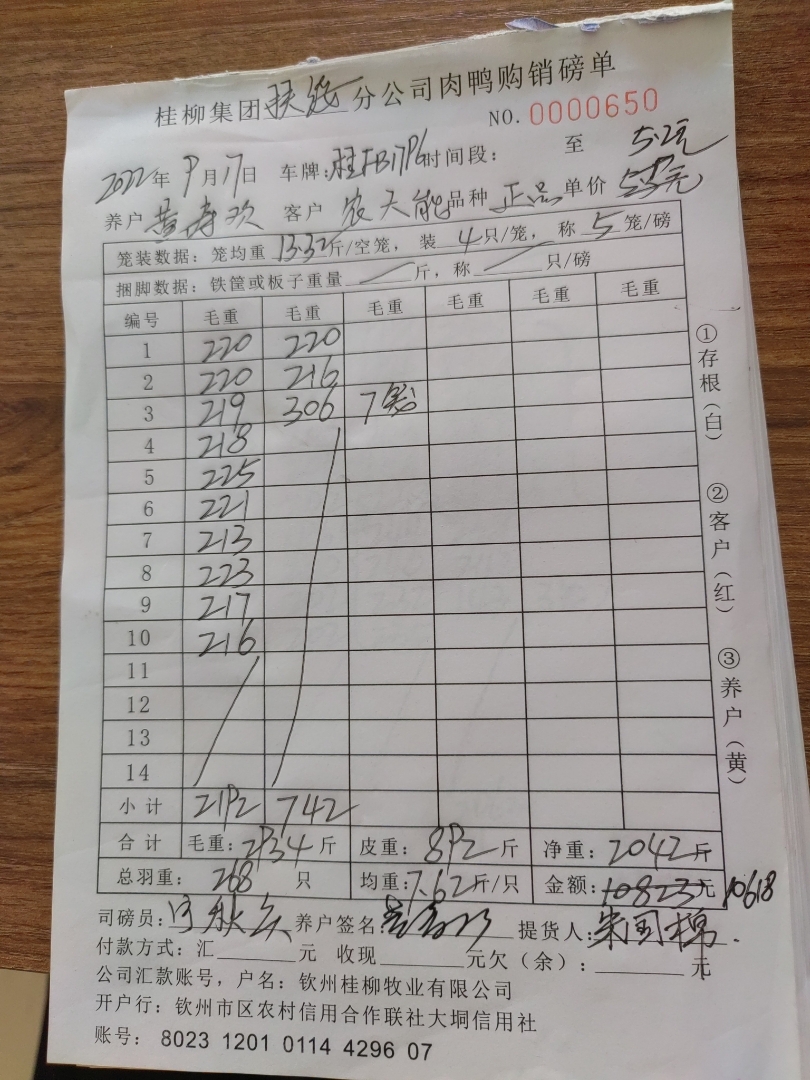 桂柳集团扶绥分公司肉鸭购销磅单
NO. 0000650
2022年9月17日 车牌: 时间段: 至 5.2元
养户 黄寿欢 客户 农天能 品种 正品 单价 5.3元
笼装数据: 笼均重 13.32斤/空笼, 装 4只/笼, 称 5 笼/磅
捆脚数据: 铁筐或板子重量 / 斤, 称 / 只/磅
编号 毛重 毛重 毛重 毛重 毛重 毛重
1 220 220
2 220 216
3 219 306 7
4 218
5 225
6 221
7 213
8 223
9 217
10 216
11
12
13
14
小计 2192 742
合计 毛重: 2934斤 皮重: 892斤 净重: 2042斤
总羽重: 268 只 均重: 7.62斤/只 金额: 10823元 10618
司磅员: 养户签名: 提货人:
付款方式: 汇 元 收现 元欠(余): 元
公司汇款账号, 户名: 钦州桂柳牧业有限公司
开户行: 钦州市区农村信用合作联社大垌信用社
账号: 8023 1201 0114 4296 07
①存根(白)
②客户(红)
③养户(黄)